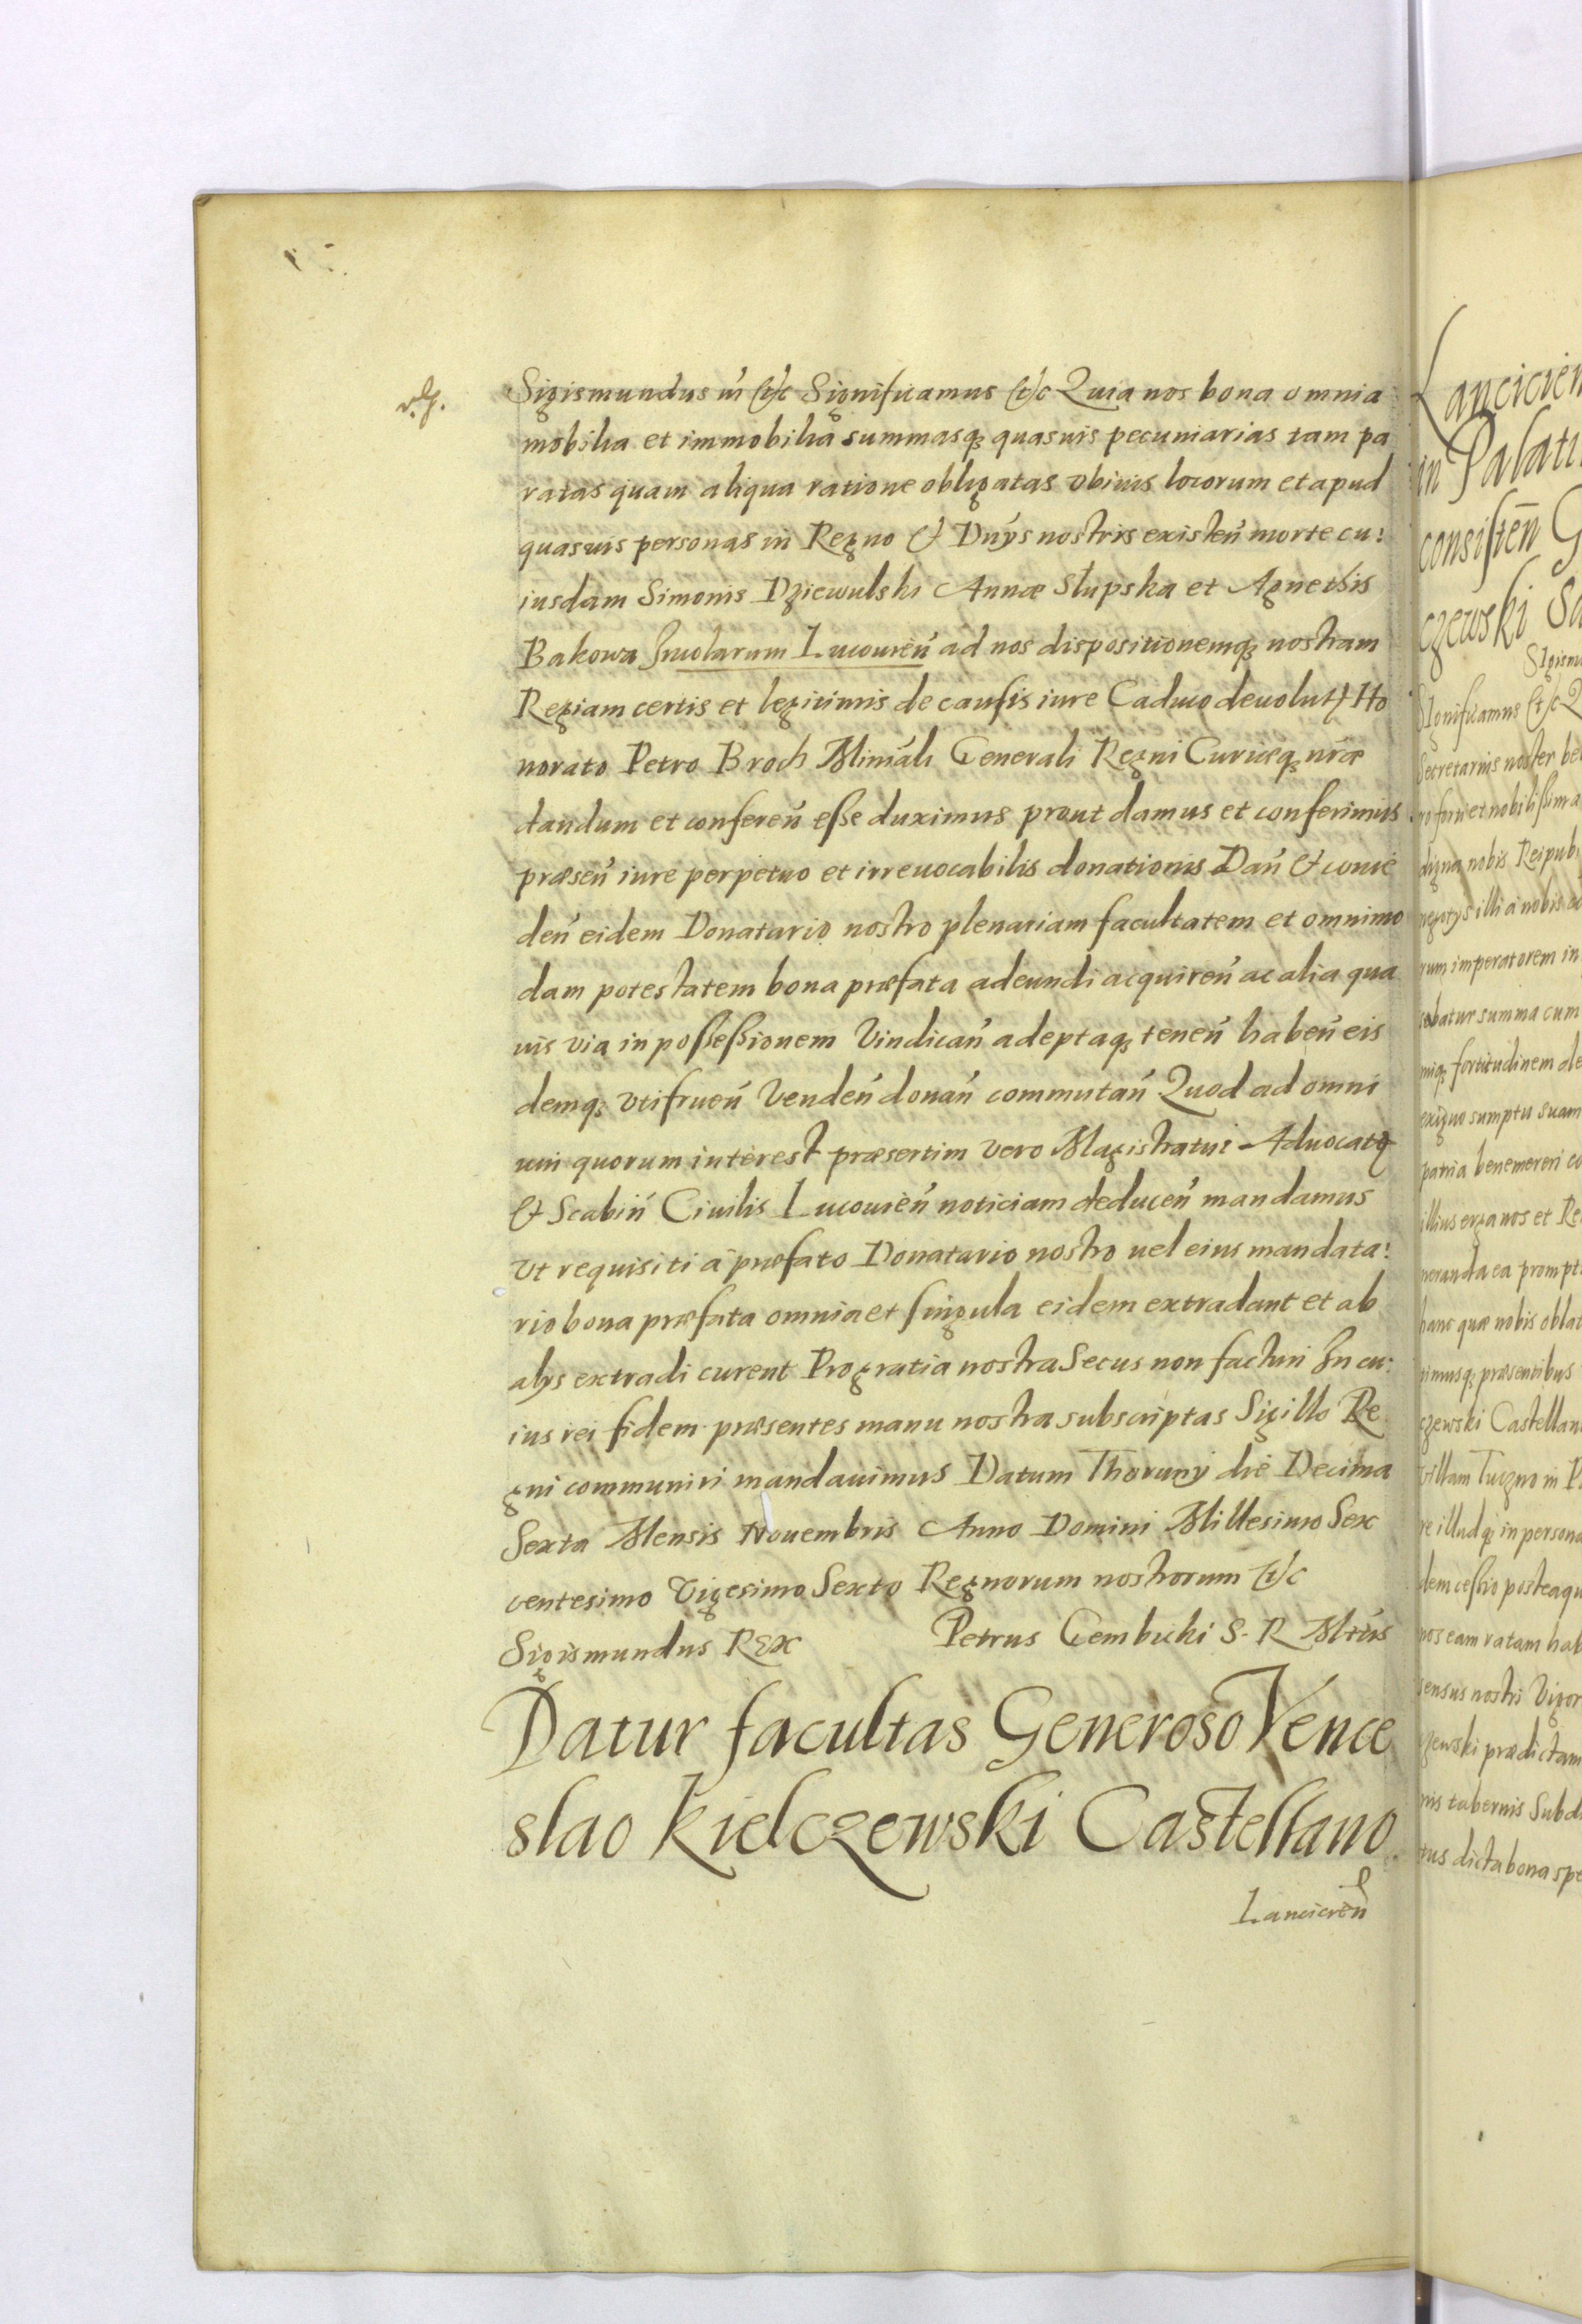 Sigismundus iii &c Significamus &c Quia nos bona omnia
mobilia et immobilia summasq quasuis pecuniarias tam pa
ratas quam aliqua ratione obligatas vbiuis locorum et apud
quasuis personas in Regno & Dnys nostris existen morte cu:
iusdam Simonis Dziewulski Annæ Słupska et Agnethis
Bakowa Incolarum Lucouien ad nos dispositionemq nostram
Regiam certis et legitimis de causis iure Caduco deuolut Ho
norato Petro Broch Miniali Generali Regni Curiæq nræ
dandum et conferen esse duximus prout damus et conferimus
præsen iure perpetuo et irreuocabilis donationis Dan & conce
den eidem Donatario nostro plenariam facultatem et omnimo
dam potestatem bona præfata adeundi acquiren ac alia qua
uis via in possessionem Vindican adeptaq tenen haben eis
demq vtifruen Venden donan commutan Quod ad omni
um quorum interest præsertim vero Magistratui Aduocato
& Scabin Ciuilis Lucouien noticiam deducen mandamus
vt requisiti à præfato Donatario nostro uel eius mandata:
rio bona præfata omnia et singula eidem extradant et ab
alys extradi curent Pro gratia nostra Secus non facturi In cu:
ius rei fidem præsentes manu nostra subscriptas Sigillo Re
gni communiri mandauimus Datum Thoruny die Decima
Sexta Mensis Nouembris Anno Domini Millesimo Sex
centesimo Vigesimo Sexto Regnorum nostrorum &c
Sigismundus REX Petrus Gembicki S. R. Mtis
Datur facultas Generoso Vence
slao Kielczewski Castellano
Lancicien
Lancicien
in Palati
consisten G
czewski Sa
Sigismu
Significamus &c Q
Secretarius noster be
digna nobis Reipub
negotys illi a nobis co
rum imperatorem in
batur summa cum
miq fortitudinem de
exiguo sumptu suam
patria benemereri co
illius erga nos et Re
neranda ea prompt
hanc quæ nobis oblat
timusq præsentibus
czewski Castellan
villam Tuczno in P
re illudq in persona
dem cessio posteaqu
nos eam ratam hab
sensus nostri Vigor
czewski prædictam
nis tabernis Subd
tus dicta bona spe